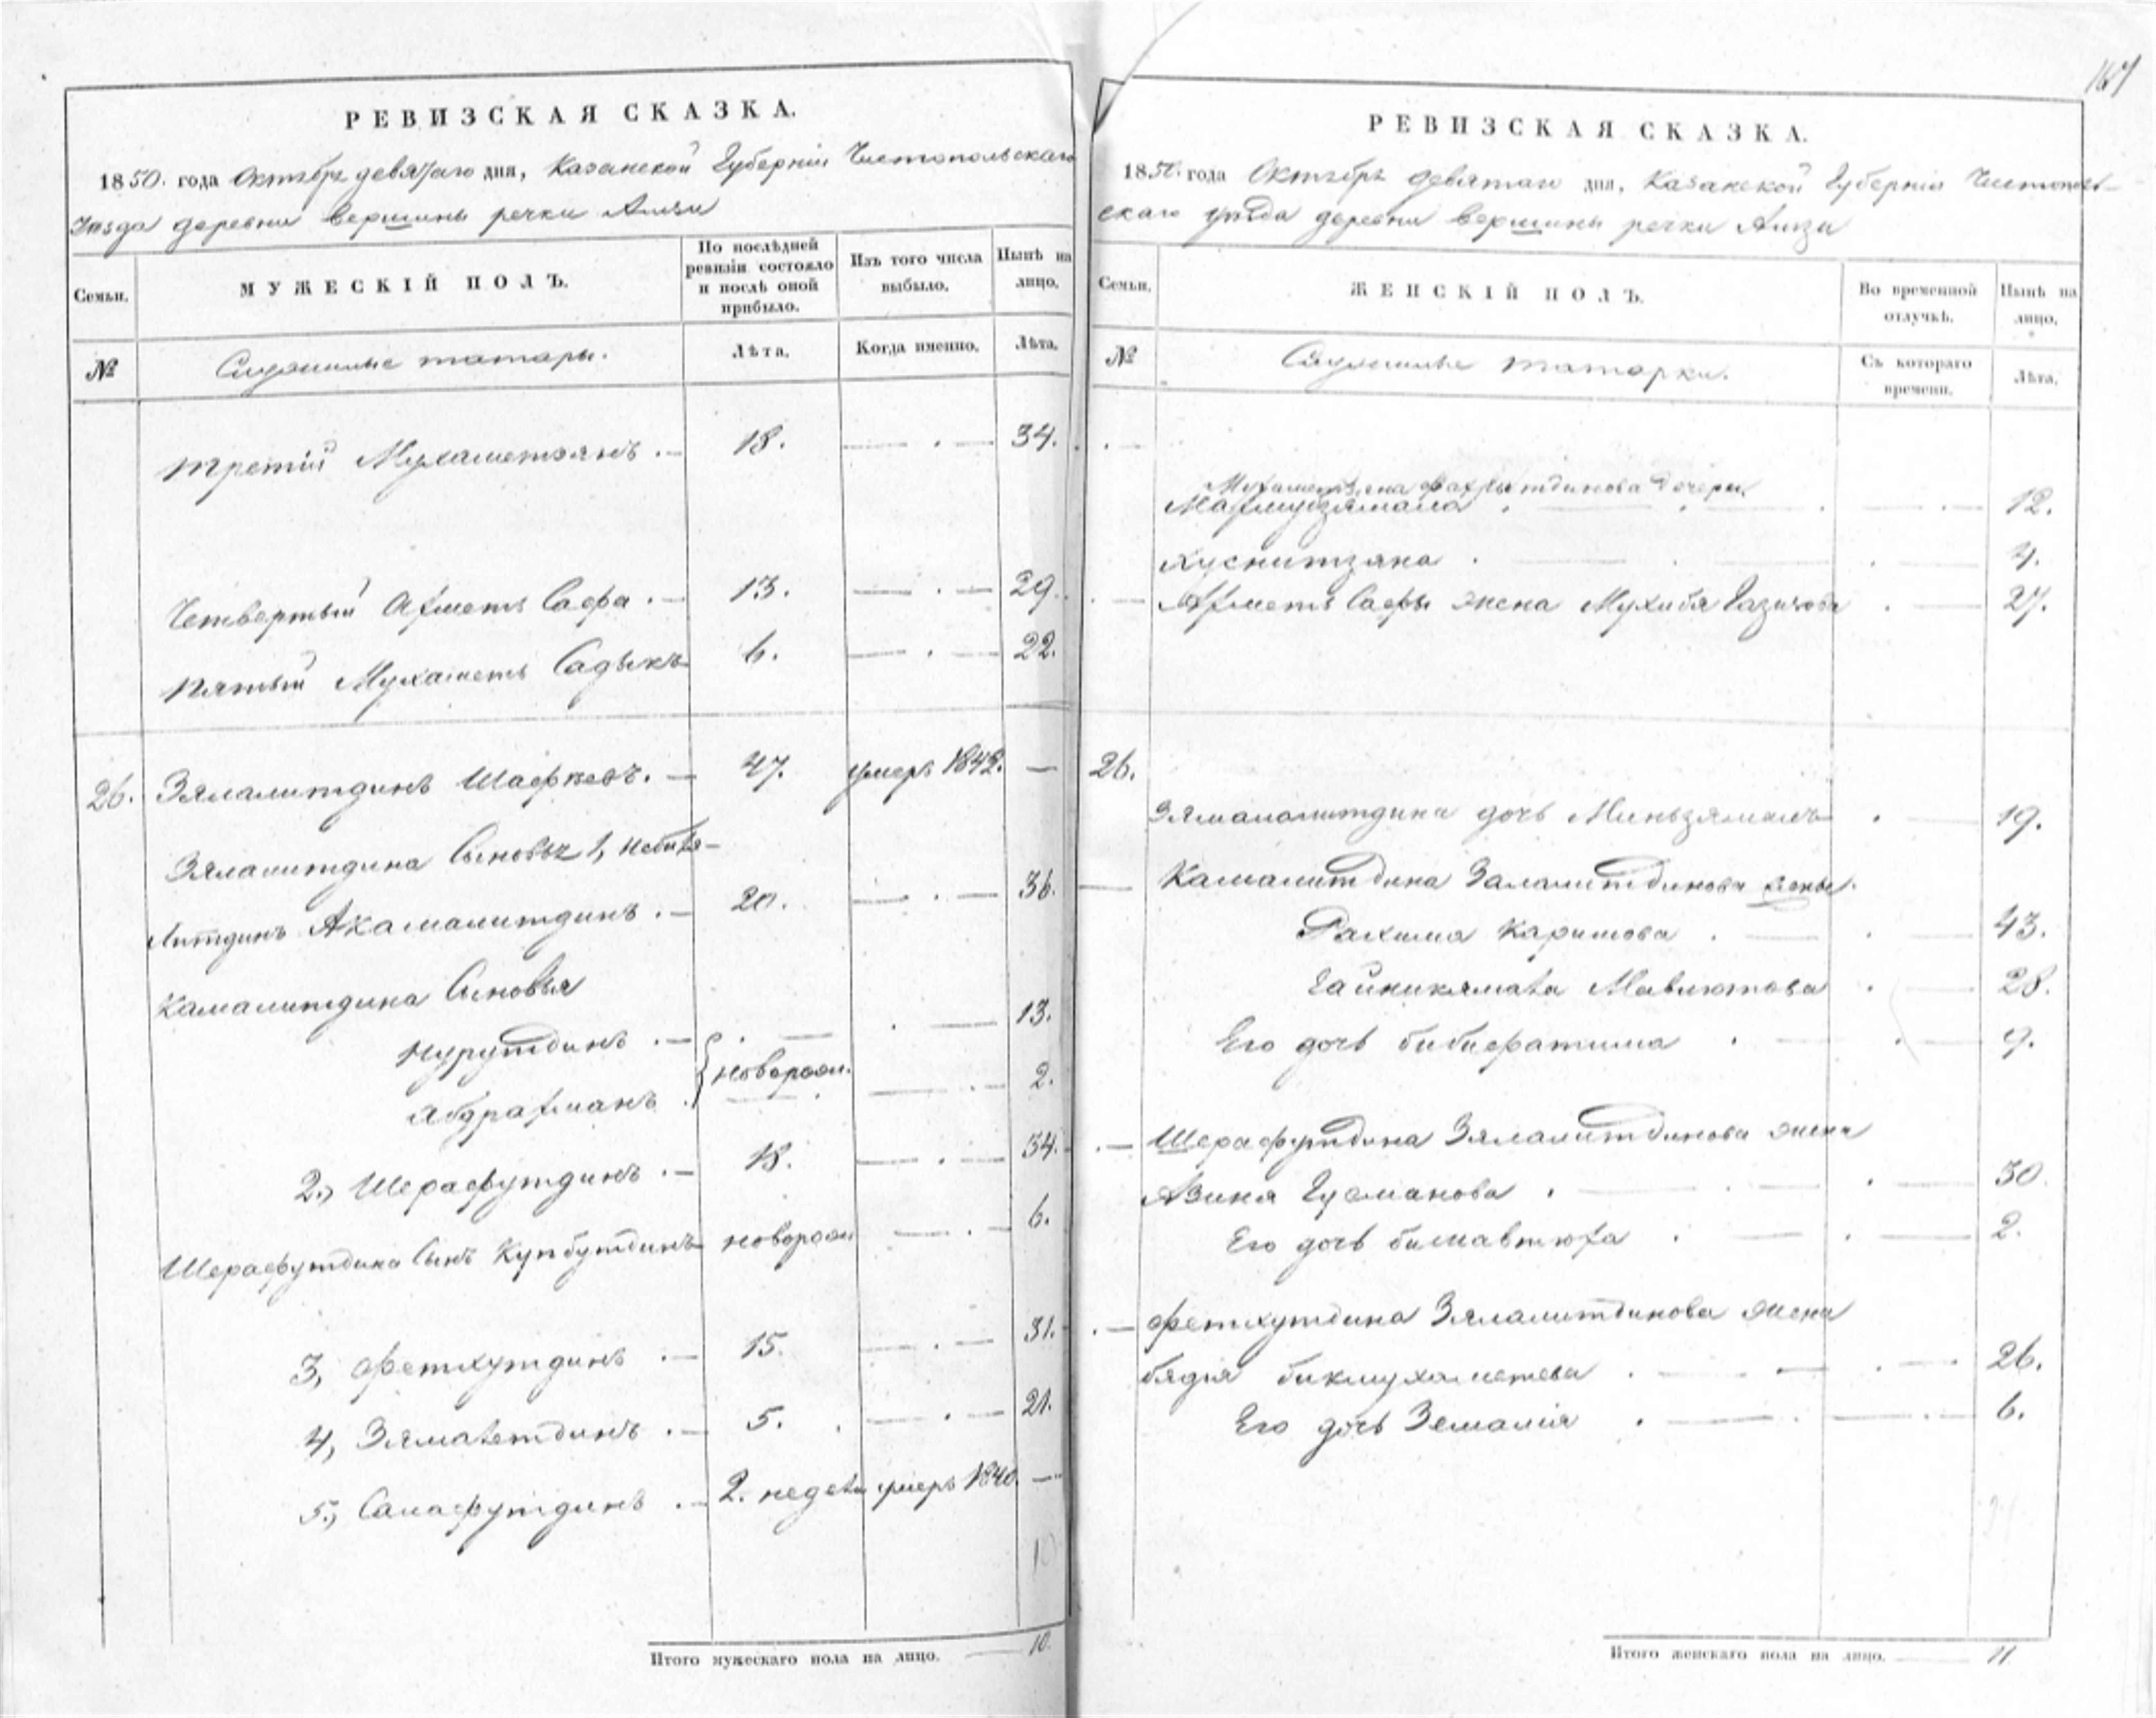 РЕВИЗСКАЯ СКАЗКА.
1850. года Октября девятаго дня, Казанской Губерніи Чистопольскаго
Уѣзда деревни вершины речки Амзи
Семьи.
МУЖЕСКІЙ ПОЛЪ.
По послѣдней ревизіи состояло и послѣ оной прибыло.
Изъ того числа выбыло.
Нынѣ на лицо.
№
Служилые татары.
Лѣта.
Когда именно.
Лѣта.
третій Мухаметзянъ . — 18. — . — 34.
Четвертый Ахметъ Сафа . — 13. — . — 29.
пятый Мухаметъ Садыкъ 6. — . — 22.
26. Зялалитдинъ Шафкеевъ. — 47. умеръ 184 —
Зялалитдина Сыновья 1,
литдинъ Акамалитдинъ . — 20. — . — 36.
Камалитдина Сыновья
Нурутдинъ . — . — . — 13.
новорож.
Абдрахманъ . — . — 2.
2., Шерафутдинъ . — 18. — . — 34.
Шерафутдина Сынъ Кутбутдинъ новорож — . — 6.
3, Фетхутдинъ . — 15. — . — 31.
4, Зямалетдинъ . — 5. — . — 21.
5., Салафутдинъ . — 2. недели умеръ 1840. —
10
Итого мужескаго пола на лицо. — 10.
167
РЕВИЗСКАЯ СКАЗКА.
1850. года Октября девятаго дня, Казанской Губерніи Чистополь-
скаго уѣзда деревни вершины речки Амзи
Семьи.
ЖЕНСКІЙ ПОЛЪ.
Во временной отлучкѣ.
Нынѣ на лицо.
№
Служилые татарки.
Съ котораго времени.
Лѣта.
Мухаметзяна Фахрытдинова дочери
Махмубзямала . — . — 12.
Хуснитзяна . — . — 4.
Ахметъ Сафы жена Мухибя Газизова . — 27.
26.
Зямалалитдина дочь Миньзямалъ . — 19.
Камалитдина Залалитдинова жены.
Рахима Каримова . — . — 43.
Гайникямала Мавлютова . — 28.
Его дочь бибифатима . — . — 9.
Шерафутдина Зялалитдинова жена
Азиня Гусманова . — . — 30
Его дочь — . — 2.
Фетхутдина Зялалитдинова жена
бядія бикмухаметева . — . — 26.
Его дочь Земалія . — . — 6.
Итого женскаго пола на лицо. — 11